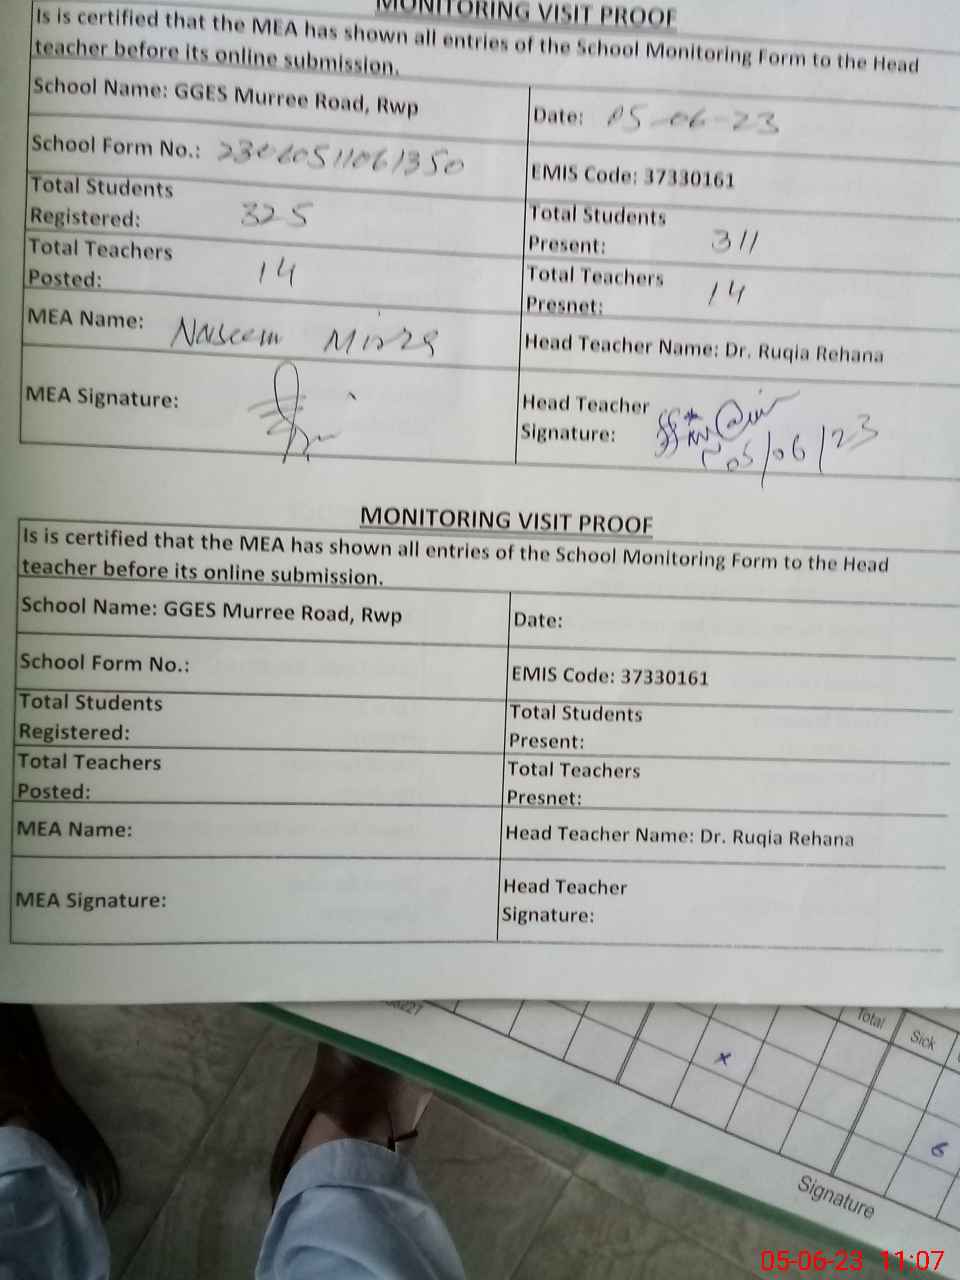 MONITORING VISIT PROOF
Is is certified that the MEA has shown all entries of the School Monitoring Form to the Head
teacher before its online submission.
School Name: GGES Murree Road, Rwp
Date: 05-06-23
School Form No.:
EMIS Code: 37330161
Total Students
Registered: 325
Total Students
Present: 311
Total Teachers
Posted: 14
Total Teachers
Presnet: 14
MEA Name: Naseem Mirza
Head Teacher Name: Dr. Ruqia Rehana
MEA Signature:
Head Teacher
Signature:
05/06/23
MONITORING VISIT PROOF
Is is certified that the MEA has shown all entries of the School Monitoring Form to the Head
teacher before its online submission.
School Name: GGES Murree Road, Rwp
Date:
School Form No.:
EMIS Code: 37330161
Total Students
Registered:
Total Students
Present:
Total Teachers
Posted:
Total Teachers
Presnet:
MEA Name:
Head Teacher Name: Dr. Ruqia Rehana
MEA Signature:
Head Teacher
Signature:
Total
Sick
x
6
Signature
05-06-23 11:07